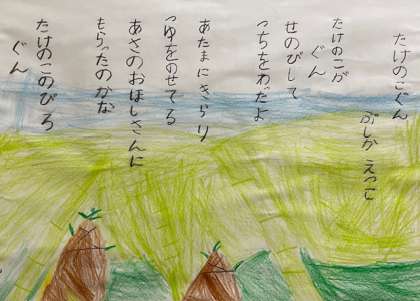 たけのこぐん
ぶしか えつこ
たけのこが
ぐん
せのびして
つちをわったよ
あたまにきらり
つゆをのせてる
あさのおほしさんに
もらったのかな
たけのこのびろ
ぐん